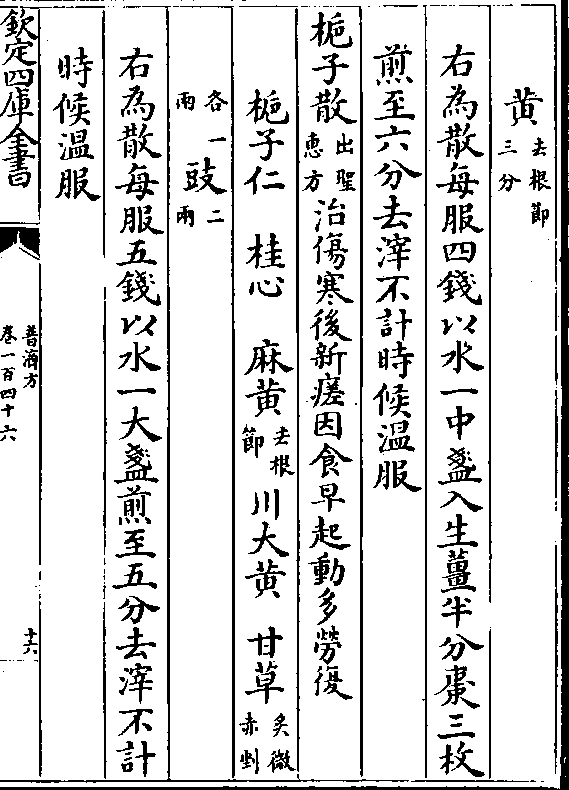 黄去根節三分
右為散每服四錢以水一中盞入生薑半分棗三枚
煎至六分去滓不計時候温服
梔子散出聖惠方治傷寒後新瘥因食早起動多勞復
梔子仁　桂心　麻黄去根節　川大黄　甘草炙微赤剉
各一兩　豉二兩
右為散每服五錢以水一大盞煎至五分去滓不計
時候温服
欽定四庫全書
普濟方
卷一百四十六
十六